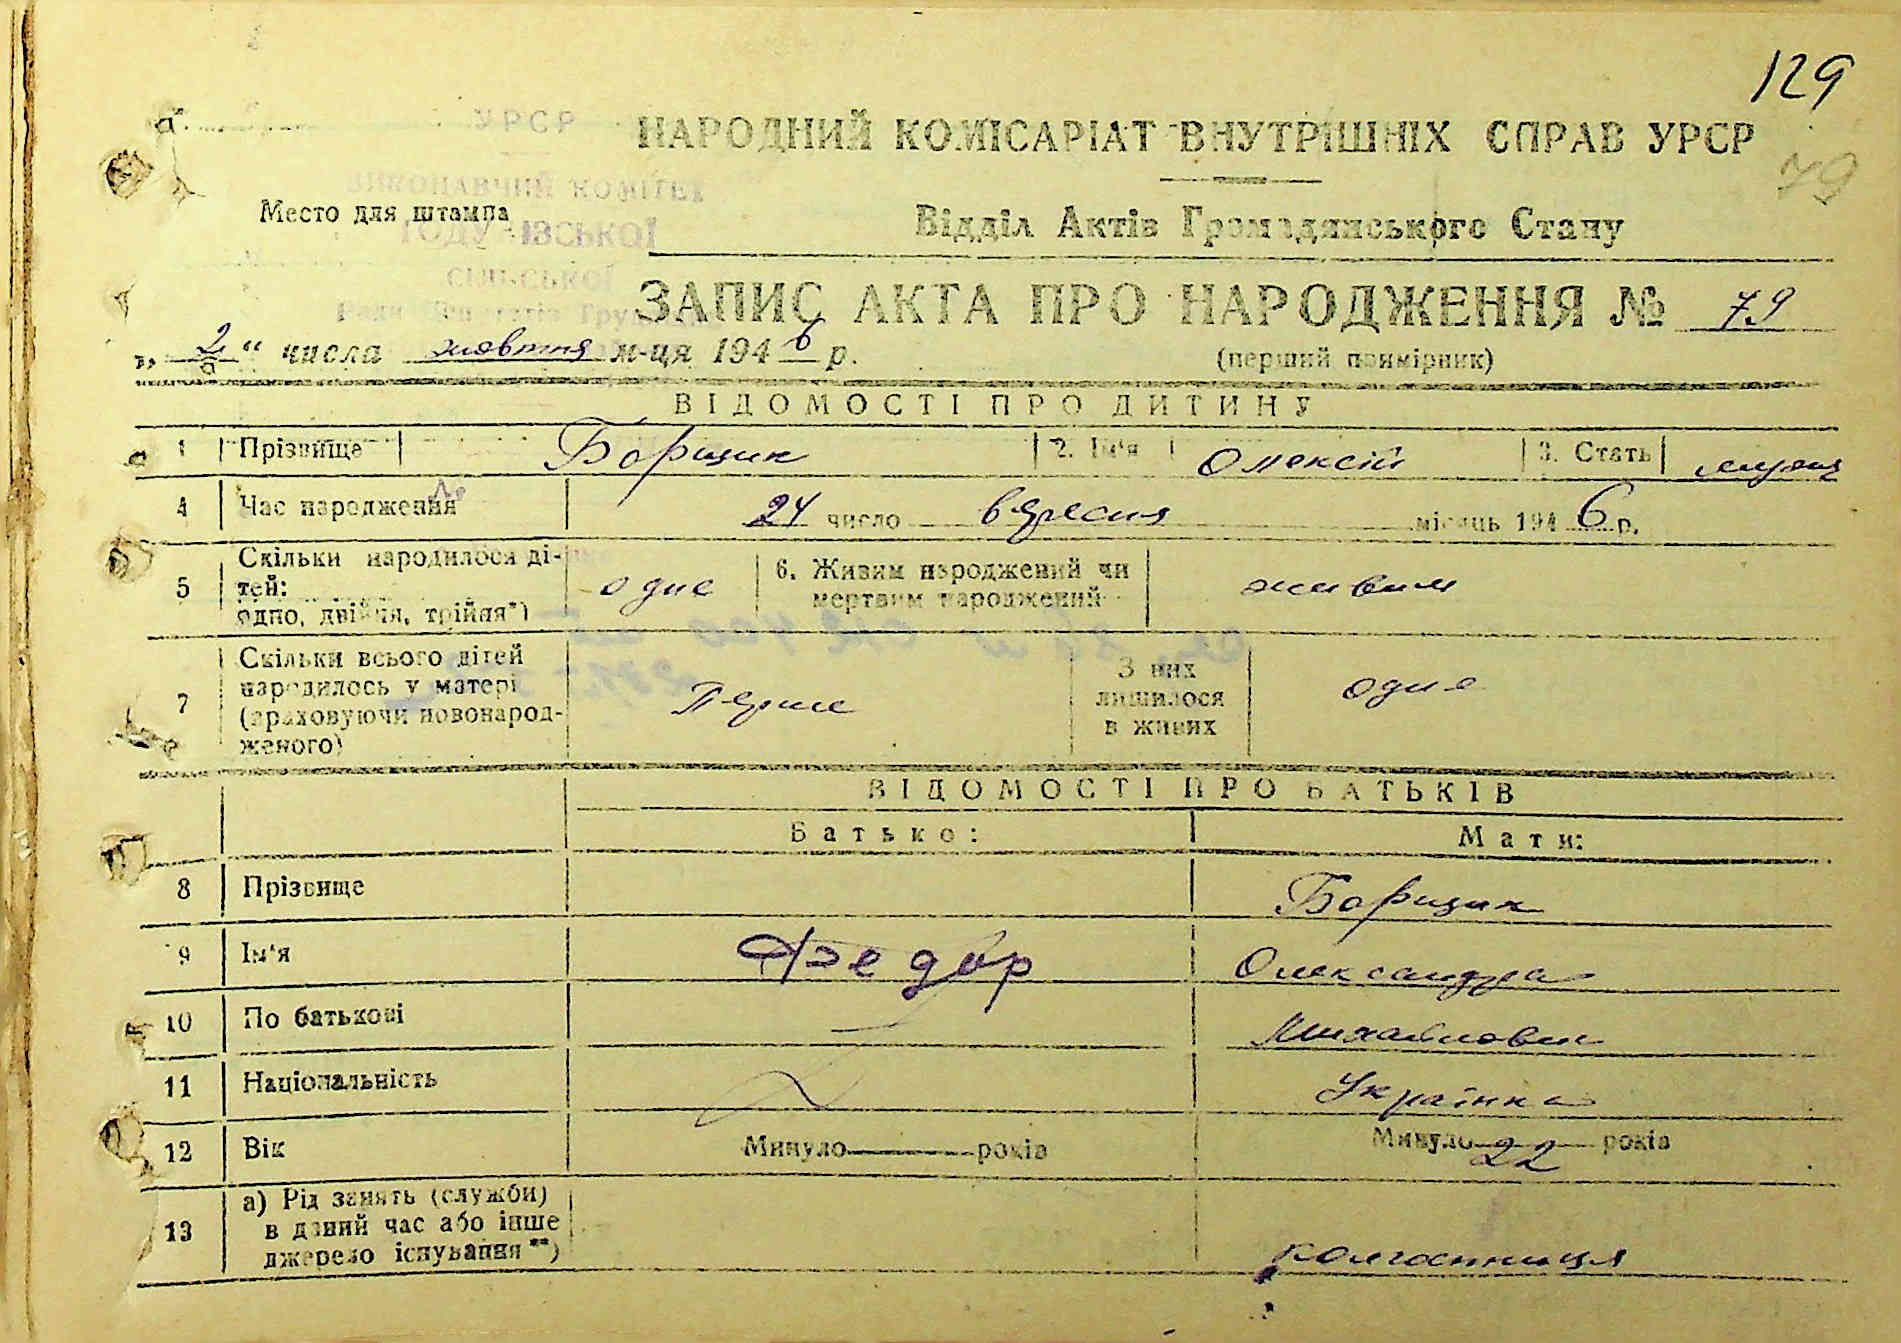 129
УРСР
НАРОДНИЙ КОМІСАРІАТ ВНУТРІШНІХ СПРАВ УРСР
79
ВИКОНАВЧИЙ КОМІТЕТ
Место для штампа
Відділ Актів Громадянського Стану
ІВСЬКОЇ
СІЛЬСЬКОЇ
ЗАПИС АКТА ПРО НАРОДЖЕННЯ № 79
„ 2 “ числа жовтня м-ця 1946 р.
(перший примірник)
ВІДОМОСТІ ПРО ДИТИНУ
1 Прізвище Борщик 2. Ім'я Олексій 3. Стать
4 Час народження 24 число вересня місяць 1946 р.
5 Скільки народилося ді-
тей:
одно, двійня, трійня*) одне 6. Живим народжений чи
мертвим народжений живим
7 Скільки всього дітей
народилось у матері
(враховуючи новонарод-
женого) Перше З них
лишилося
в живих одне
ВІДОМОСТІ ПРО БАТЬКІВ
Батько: Мати:
8 Прізвище Борщик
9 Ім'я Федор Олександра
10 По батькові — Михайловна
11 Національність Українка
12 Вік Минуло — років Минуло 22 років
13 а) Рід занять (служби)
в даний час або інше
джерело існування**) колгоспниця